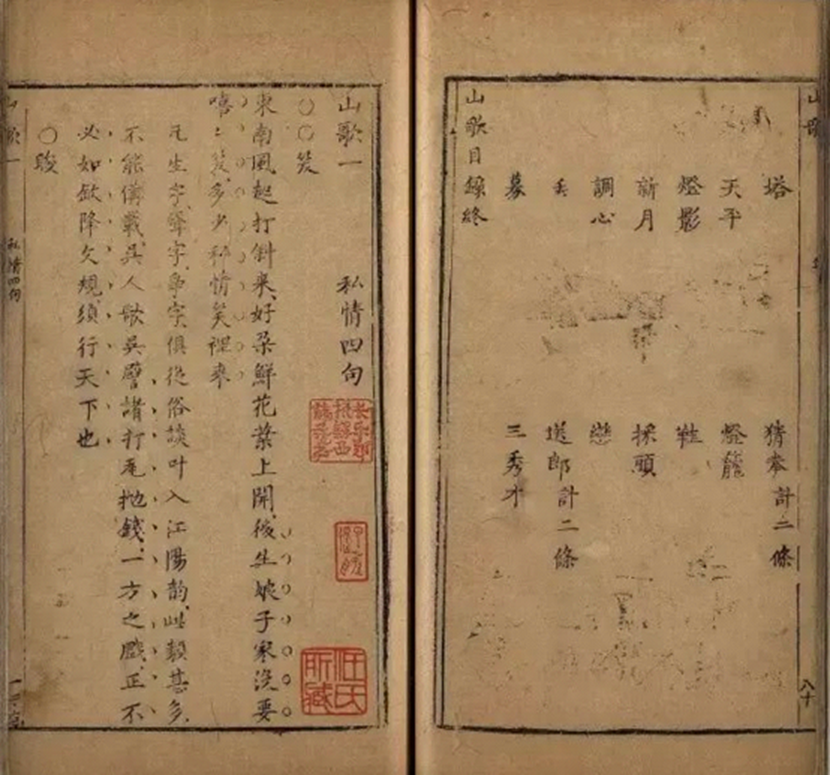 山歌
塔 猜拳計二條
天平 燈籠
燈影 鞋
新月 採頭
調心 戀
丟 送郎計二條
募 三秀才
山歌目錄終
山歌一 私情四句
長樂鄭
振鐸西
諦藏書
汪氏
所藏
○○笑
東南風起打斜來、好朶鮮花葉上開、後生娘子家沒要
嘻〻笑、多少私情笑裡來
凡生字、聲字、爭字、俱從俗談叶入江陽韵、此類甚多、
不能備載、吳人歌吳、譬諸打瓦抛錢、一方之戲、正不
必如欽降文規、須行天下也
○睃
山歌一 私情四句